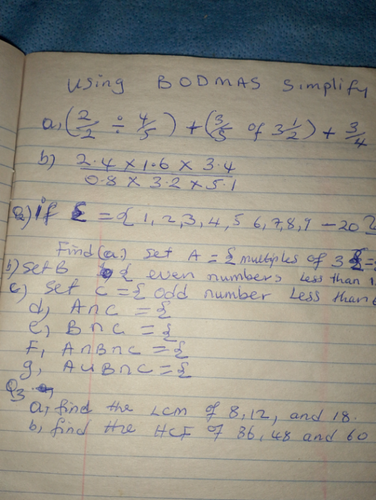 Using BODMAS Simplify
a, (2/2 ÷ 4/5) + (3/5 of 3 1/2) + 3/4
b) 2.4 × 1.6 × 3.4 / 0.8 × 3.2 × 5.1
2) if ξ = { 1, 2, 3, 4, 5 6, 7, 8, 9 – 20
Find (a) set A = { multiples of 3
b) set B { even numbers less than
c) set C = { odd number Less than
d, A∩C = {
e, B∩C = {
f, A∩B∩C = {
g, A∪B∩C = {
Q3
a, find the LCM of 8, 12, and 18.
b, find the HCF of 36, 48 and 60